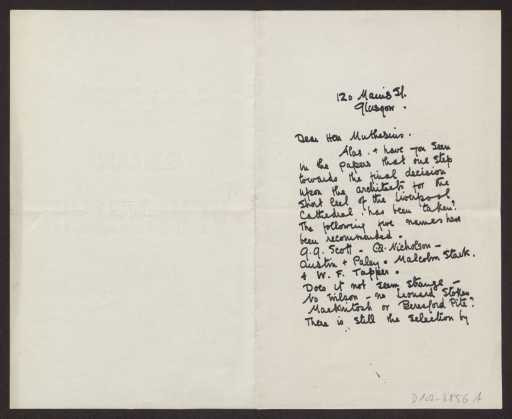 120 Mains St.
Glasgow.
Dear Herr Muthesius.
Alas. & have you seen
in the papers that one step
towards the final decision
upon the architects for the
short leet of the Liverpool
Cathedral has been taken?
The following five names have
been recommended.
G.G. Scott – C. Nicholson –
Austin & Paley. Malcolm Stark.
& W. F. Tapper.
Does it not seem strange –
No Wilson – no Leonard Stokes
Mackintosh or Beresford Pite?
There is still the selection by